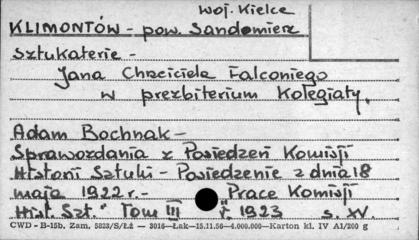 woj. Kielce
KLIMONTÓW - pow. Sandomierz
Sztukaterie -
Jana Chrzciciela Falconiego
w prezbiterium Kolegiaty.
Adam Bochnak -
Sprawozdania z Posiedzeń Komisji
Historii Sztuki - Posiedzenie z dnia 18
maja 1922 r. - Prace Komisji
Hist. Szt. Tom III r. 1923 s. XV.
CWD - B-15b. Zam. 5823/S/Łż — 3016—Łak—15.11.56—4.000.000—Karton kl. IV A1/200 g